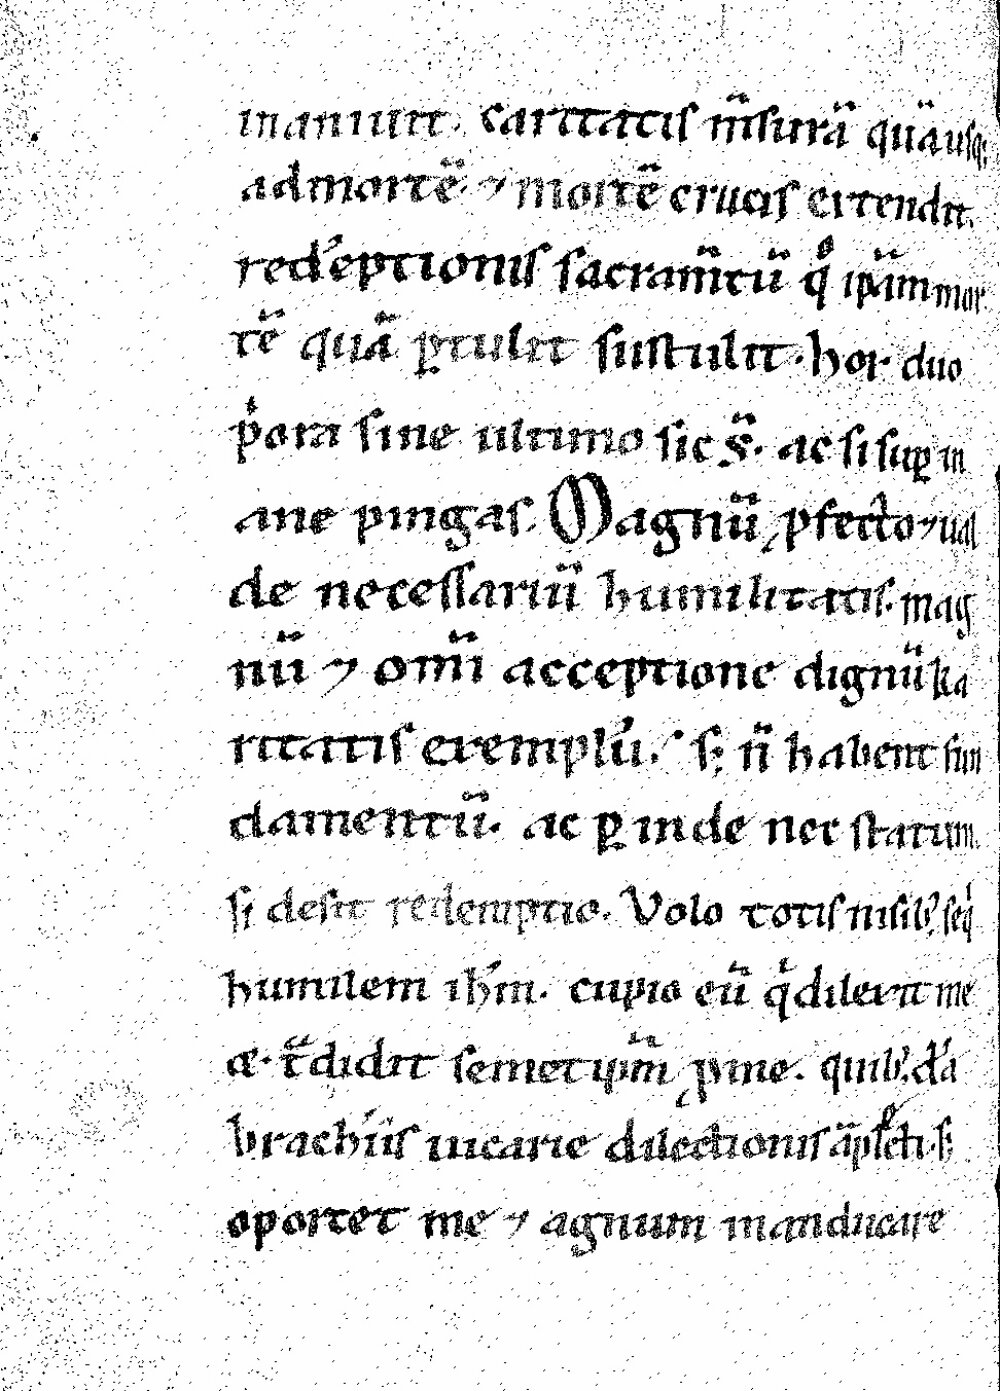 inaniuit. caritatis m̅surā quā usq;
ad mortē. ⁊ mortē crucis extendit.
redēptionis sacram̅tū qd̕ ipam mor
tē quā ꝑtulit sustulit. hor duo
pͥora sine ultimo sic s̅. ac si suꝑ in
ane pingas. Magnū ꝓfecto ⁊ ual
de necessariū humilitatis. mag
nū ⁊ omi̅ acceptione dignū ka
ritatis exemplū. s; n̅ habent fun
damentū. ac ꝑinde nec statum.
si desit redemptio. Volo totis nisib; seqͥ
humilem ihm̅. cupio eū qͥ dilexit me
æ. t̅didit semet ipm̅ ꝓ me. quib;dā
brachiis uicarie dilectionis āplecti. s;
oportet me ⁊ agnum manducare